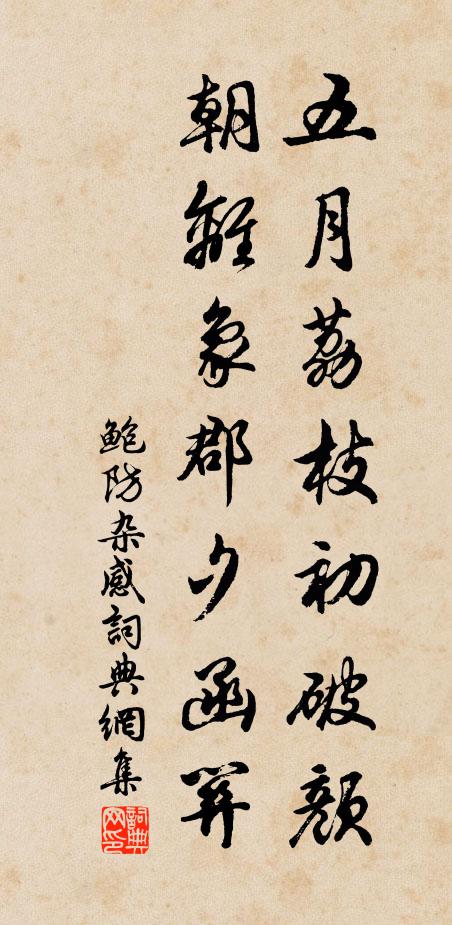 五月荔枝初破顔
朝離象郡夕函関
鮑防杂感詞典網集
詞典
网印